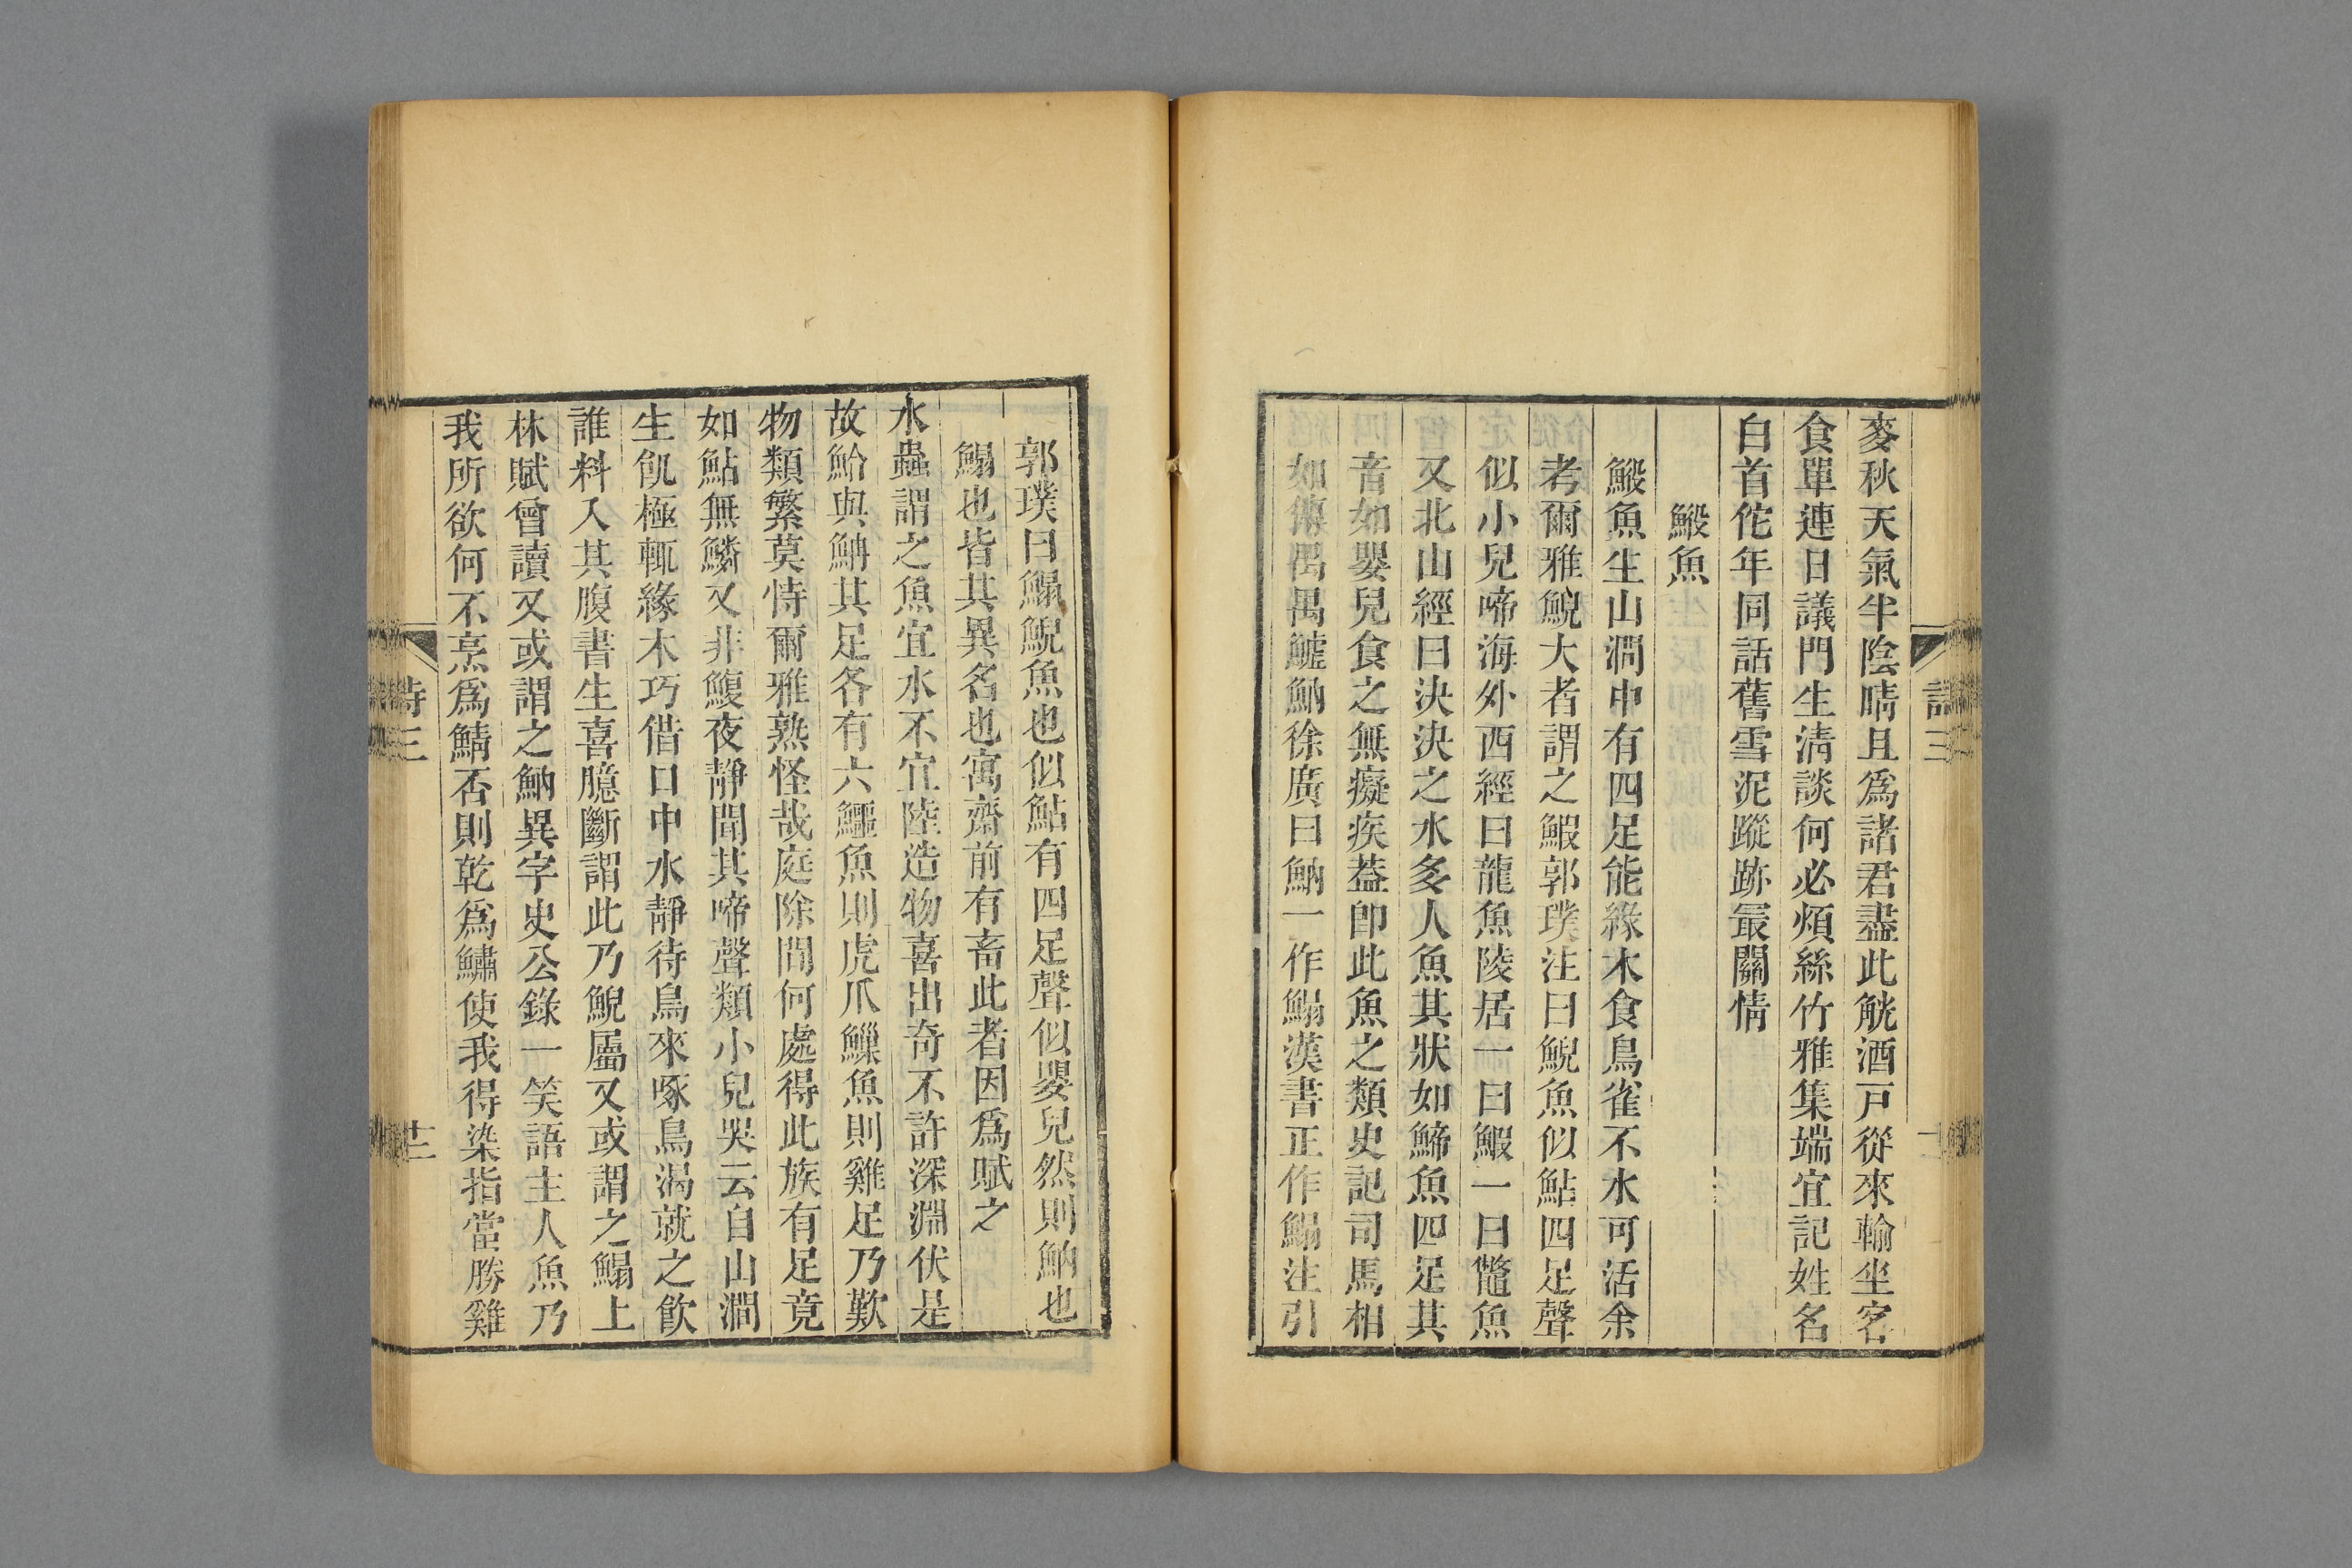 麥秋天氣半陰晴且爲諸君盡此觥酒戸從來輸坐客
食單連日議門生淸談何必煩絲竹雅集端宜記姓名
白首佗年同話舊雪泥蹤跡最關情
鰕魚
鰕魚生山澗中有四足能緣木食鳥雀不水可活余
考爾雅鯢大者謂之鰕郭璞注曰鯢魚似鮎四足聲
似小兒啼海外西經曰龍魚陵居一曰鰕一曰鼈魚
又北山經曰決決之水多人魚其狀如䱱魚四足其
音如嬰兒食之無癡疾葢卽此魚之類史記司馬相
如傳禺禺鱋魶徐廣曰魶一作鰨漢書正作鰨注引
郭璞曰鰨鯢魚也似鮎有四足聲似嬰兒然則魶也
鰨也皆其異名也寓齋前有畜此者因爲賦之
水蟲謂之魚宜水不宜陸造物喜出奇不許深淵伏是
故鮯與䱇其足各有六鱷魚則虎爪鱳魚則雞足乃歎
物類繁莫恃爾雅熟怪哉庭除間何處得此族有足竟
如鮎無鱗又非鰒夜靜聞其啼聲類小兒哭云自山澗
生飢極輒緣木巧借口中水靜待鳥來啄鳥渴就之飮
誰料入其腹書生喜臆斷謂此乃鯢屬又或謂之鰨上
林賦曾讀又或謂之魶異字史公錄一笑語主人魚乃
我所欲何不烹爲鯖否則乾爲鱐使我得染指當勝雞
詩三